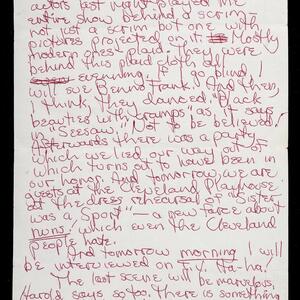 actors last night played the
entire show behind a scrim
not just a scrim but one with
pictures projected on it. Mostly
modern ones. Plaid. They were
behind this plaid cloth all
evening. If I go blind, I
will sue Benno Frank. And then,
I think, they danced. "Black
beauties with cramps" as it says
in "Seesaw." Not to be believed!
Afterwards there was a party
which we lied our way out of
which turns out to have been in
our honor. And tomorrow we are
guests at the Cleveland Playhouse
at the dress rehearsal of "Sister
was a Sport" — a new farce about
nuns, which even the Cleveland
people hate.
And tomorrow morning I will
be interviewed on T.V. Ha-ha.
The last scene will be marvelous,
Harold says so too. There is something